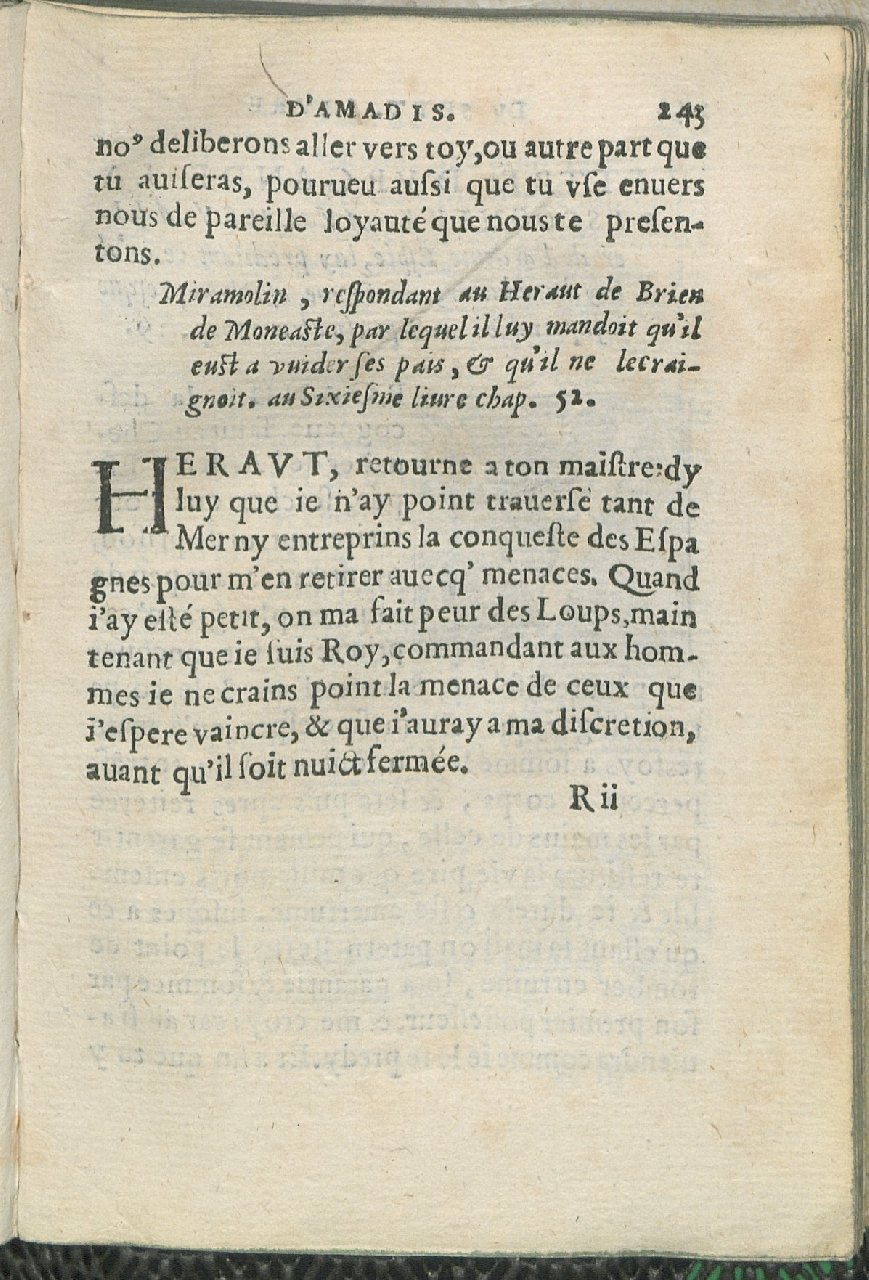 D'AMADIS. 243
noꝰ deliberons aller vers toy, ou autre part que
tu auiſeras, pourueu auſsi que tu vſe enuers
nous de pareille loyauté que nous te preſen-
tons.
Miramolin, reſpondant au Heraut de Brien
de Moneaſte, par lequel il luy mandoit qu'il
euſt a vuider ſes païs, & qu'il ne le crai-
gnoit. au Sixieſme liure chap. 52.
HERAVT, retourne a ton maiſtre: dy
luy que ie n'ay point trauerſé tant de
Mer ny entreprins la conqueſte des Eſpa
gnes pour m'en retirer auecq' menaces. Quand
i'ay eſté petit, on ma fait peur des Loups, main
tenant que ie ſuis Roy, commandant aux hom-
mes ie ne crains point la menace de ceux que
i'eſpere vaincre, & que i'auray a ma diſcretion,
auant qu'il ſoit nuict fermée.
R ii